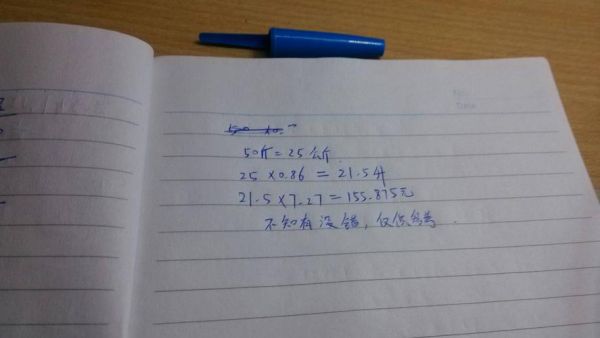 50斤=25公斤
25×0.86=21.5升
21.5×7.27=155.875元
不知有没错,仅供参考.